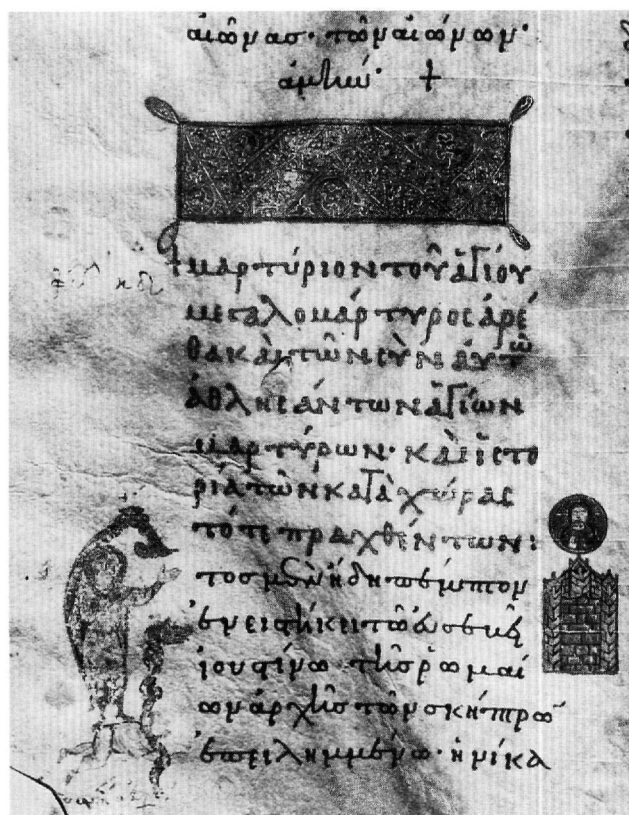 αἰῶνασ· τῶν αἰώνων·
ἀμήν· +
+ μαρτύριον τοῦ ἁγίου
μεγαλομάρτυρος ἀρέ
θα καὶ τῶν σὺν αὐτῶ
ἀθλησάντων ἁγίων
μαρτύρων· καὶ ἱστο
ρία τῶν κατὰ χώρας
τότε πραχθέντων:
τοσ μὲν ἤδη πέμπτον
ἐνειστήκει τῶ εὐσεβεῖ
ἰουστίνω τῆσ ῥωμαί
ων ἀρχῆσ τῶν σκήπτρω
ἐπειλημμένω· ἡνίκα